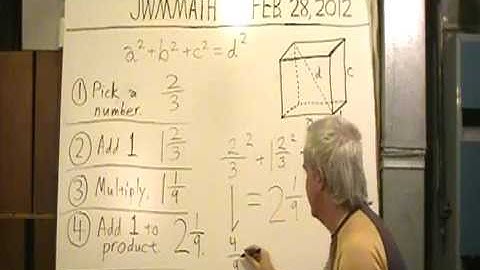 JWMMATH FEB. 28, 2012
a² + b² + c² = d²
① Pick a number. 2/3
② Add 1 1 2/3
③ Multiply. 1 1/9
④ Add 1 to product. 2 1/9.
d
c
2/3² + 1 2/3²
= 2 1/9
4/9